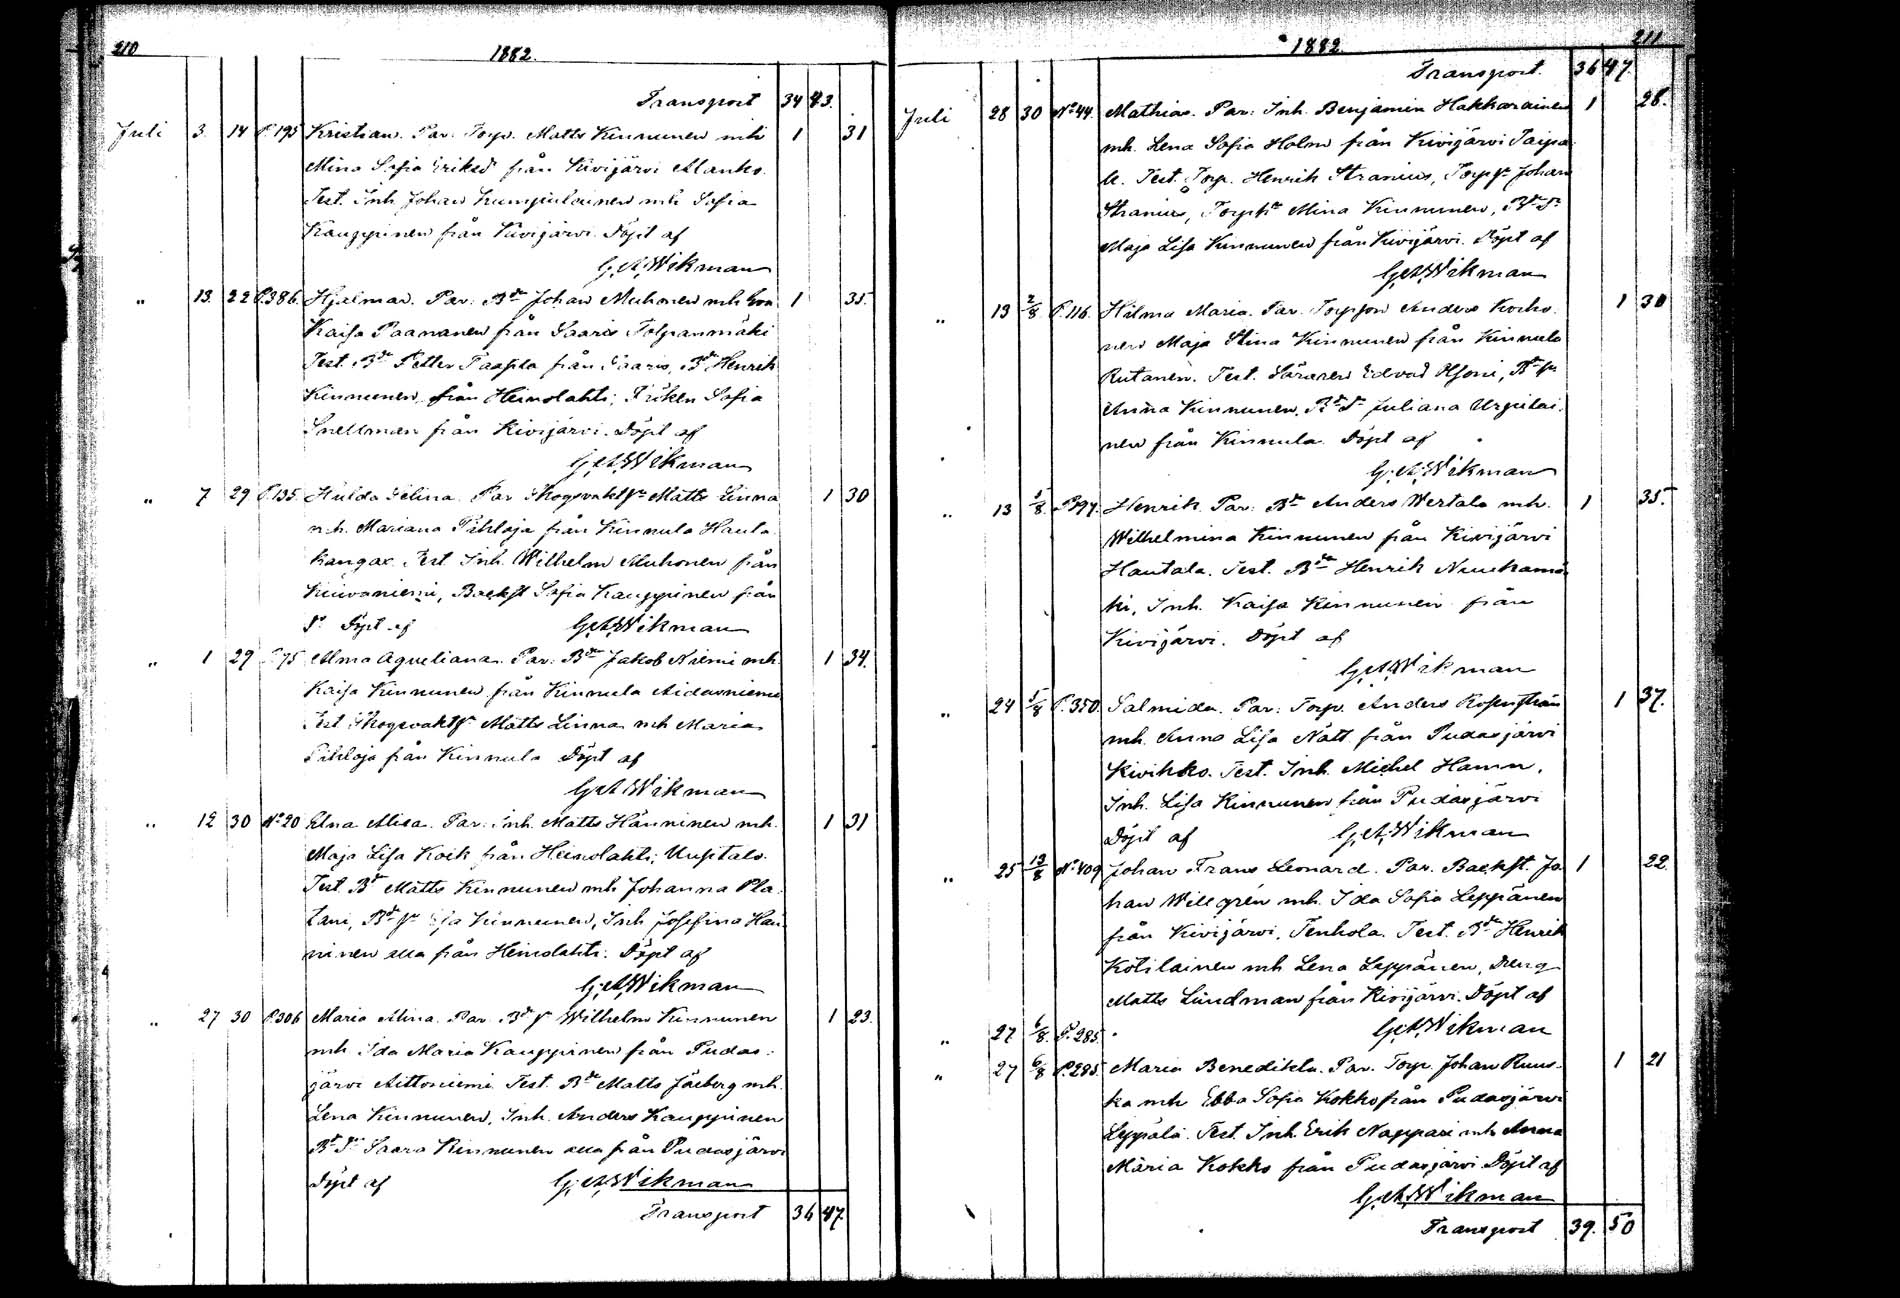 210
1882.
Transport 34 43.
Juli 3. 14 P.195 Kristian. Par: Torp. Matts Kinnunen mh 1 31
Mina Sofia Eriksd från Kivijärvi Alanko.
Test. Inh Johan Kumpulainen mh Sofia
Kauppinen från Kivijärvi. Döpt af
G.A.Wikman
" 13. 22 P.386. Hjalmar. Par: Bde Johan Muhonen mh Eva 1 35.
Kaisa Paananen från Saaris Tolpanmäki
Test. Bde Petter Paasila från Saaris, Bde Henrik
Kinnunen, från Heinolahti; Fröken Sofia
Snellman från Kivijärvi. Döpt af
G.A.Wikman
" 7 29 P.135. Hulda Selina. Par Skogsvakt Matts Linna 1 30
mh. Mariana Pihlaja från Kinnula Hauta
kangas. Test Inh. Wilhelm Muhonen från
Backst Sofia Kauppinen från
Do Döpt af G.A.Wikman
" 1 29 P.75 Alma Aqueliana. Par: Bde Jakob Niemi mh. 1 34.
Kaisa Kinnunen från Kinnula
Test Skogsvakt Matts Linna mh Maria
Pihlaja från Kinnula Döpt af
G.A.Wikman
" 12 30 No 20 Elna Alisa. Par: Inh. Matts Hänninen mh. 1 31
Maja Lisa Koik från Heinolahti; Uusitalo.
Test Bde Matts Kinnunen mh Johanna Pla
tani, Bde Kinnunen, Inh. Josefina Hän
ninen alla från Heinolahti. Döpt af
G.A.Wikman
" 27 30 P.306 Maria Alina. Par. Bde Wilhelm Kinnunen 1 23.
mh Ida Maria Kauppinen från Pudas:
järvi Aittoniemi. Test. Bde Matts mh.
Lena Kinnunen, Inh. Anders Kauppinen
Saara Kinnunen alla från Pudasjärvi
Döpt af G.A.Wikman
Transport 36 47.
1882.
211
Transport. 36 47.
Juli 28 30 No 44. Mathias. Par: Inh. Benjamin Hakkarainen 1 28.
mh. Lena Sofia Holm från Kivijärvi Taipa
le. Test. Torp. Henrik Stranius, Johan
Stranius, Mina Kinnunen,
Maja Lisa Kinnunen från Kivijärvi. Döpt af
G.A.Wikman
" 13 2/8. P.116. Hilma Maria. Par. Anders Korho 1 30
nen Maja Stina Kinnunen från Kinnula
Rutanen. Test. Edvad
Anna Kinnunen, Juliana Urpilai
nen från Kinnula. Döpt af
G.A.Wikman
" 13 5/8. Henrik. Par: Bde Anders Wertala mh. 1 35.
Wilhelmina Kinnunen från Kivijärvi
Hautala. Test. Bde Henrik
ki, Inh. Kaisa Kinnunen från
Kivijärvi. Döpt af
G.A.Wikman
" 24 5/8 P.350. Salmida. Par: Torp. Anders Rosenström 1 37.
mh. Anna Lisa Nätt från Pudasjärvi
Kivikko. Test. Inh. Michel Hamn,
Inh. Lisa Kinnunen från Pudasjärvi
Döpt af G.A.Wikman
" 25 13/8 No 409 Johan Frans Leonard. Par. Backst. Jo 1 22.
han Willgrén mh. Ida Sofia Leppänen
från Kivijärvi, Tenhola. Test. Bde Henrik
Kotilainen mh Lena Leppänen, Dreng
Matts Lindman från Kivijärvi. Döpt af
G.A.Wikman
" 27 6/8. P.285.
" 27 6/8 P.295. Maria Benedikta. Par. Torp. Johan Ruus- 1 21
ka mh Ebba Sofia Kokko från Pudasjärvi
Leppälä. Test. Inh. Erik Nappari mh Anna
Maria Kokko från Pudasjärvi Döpt af
G.A.Wikman
Transport 39. 50